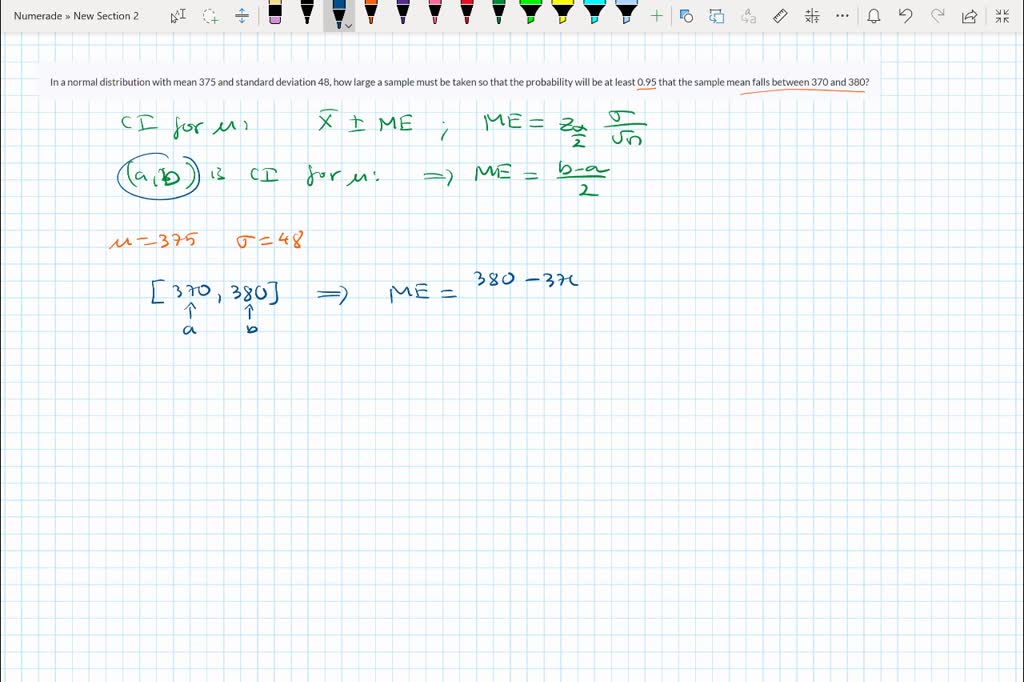 Numerade » New Section 2
In a normal distribution with mean 375 and standard deviation 48, how large a sample must be taken so that the probability will be at least 0.95 that the sample mean falls between 370 and 380?
CI for μ: x̄ ± ME ; ME = z_{α/2} σ/√n
(a,b) is CI for μ: ⇒ ME = (b-a)/2
μ=375 σ=48
[370, 380] ⇒ ME = 380 - 370
↑ ↑
a b